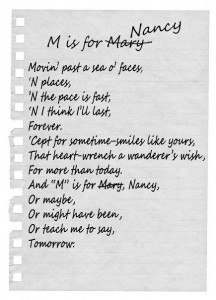 M is for Mary Nancy
Movin' past a sea o' faces,
'N places,
'N the pace is fast,
'N I think I'll last,
Forever.
'Cept for sometime-smiles like yours,
That heart-wrench a wanderer's wish,
For more than today.
And "M" is for Mary, Nancy,
Or maybe,
Or might have been,
Or teach me to say,
Tomorrow.